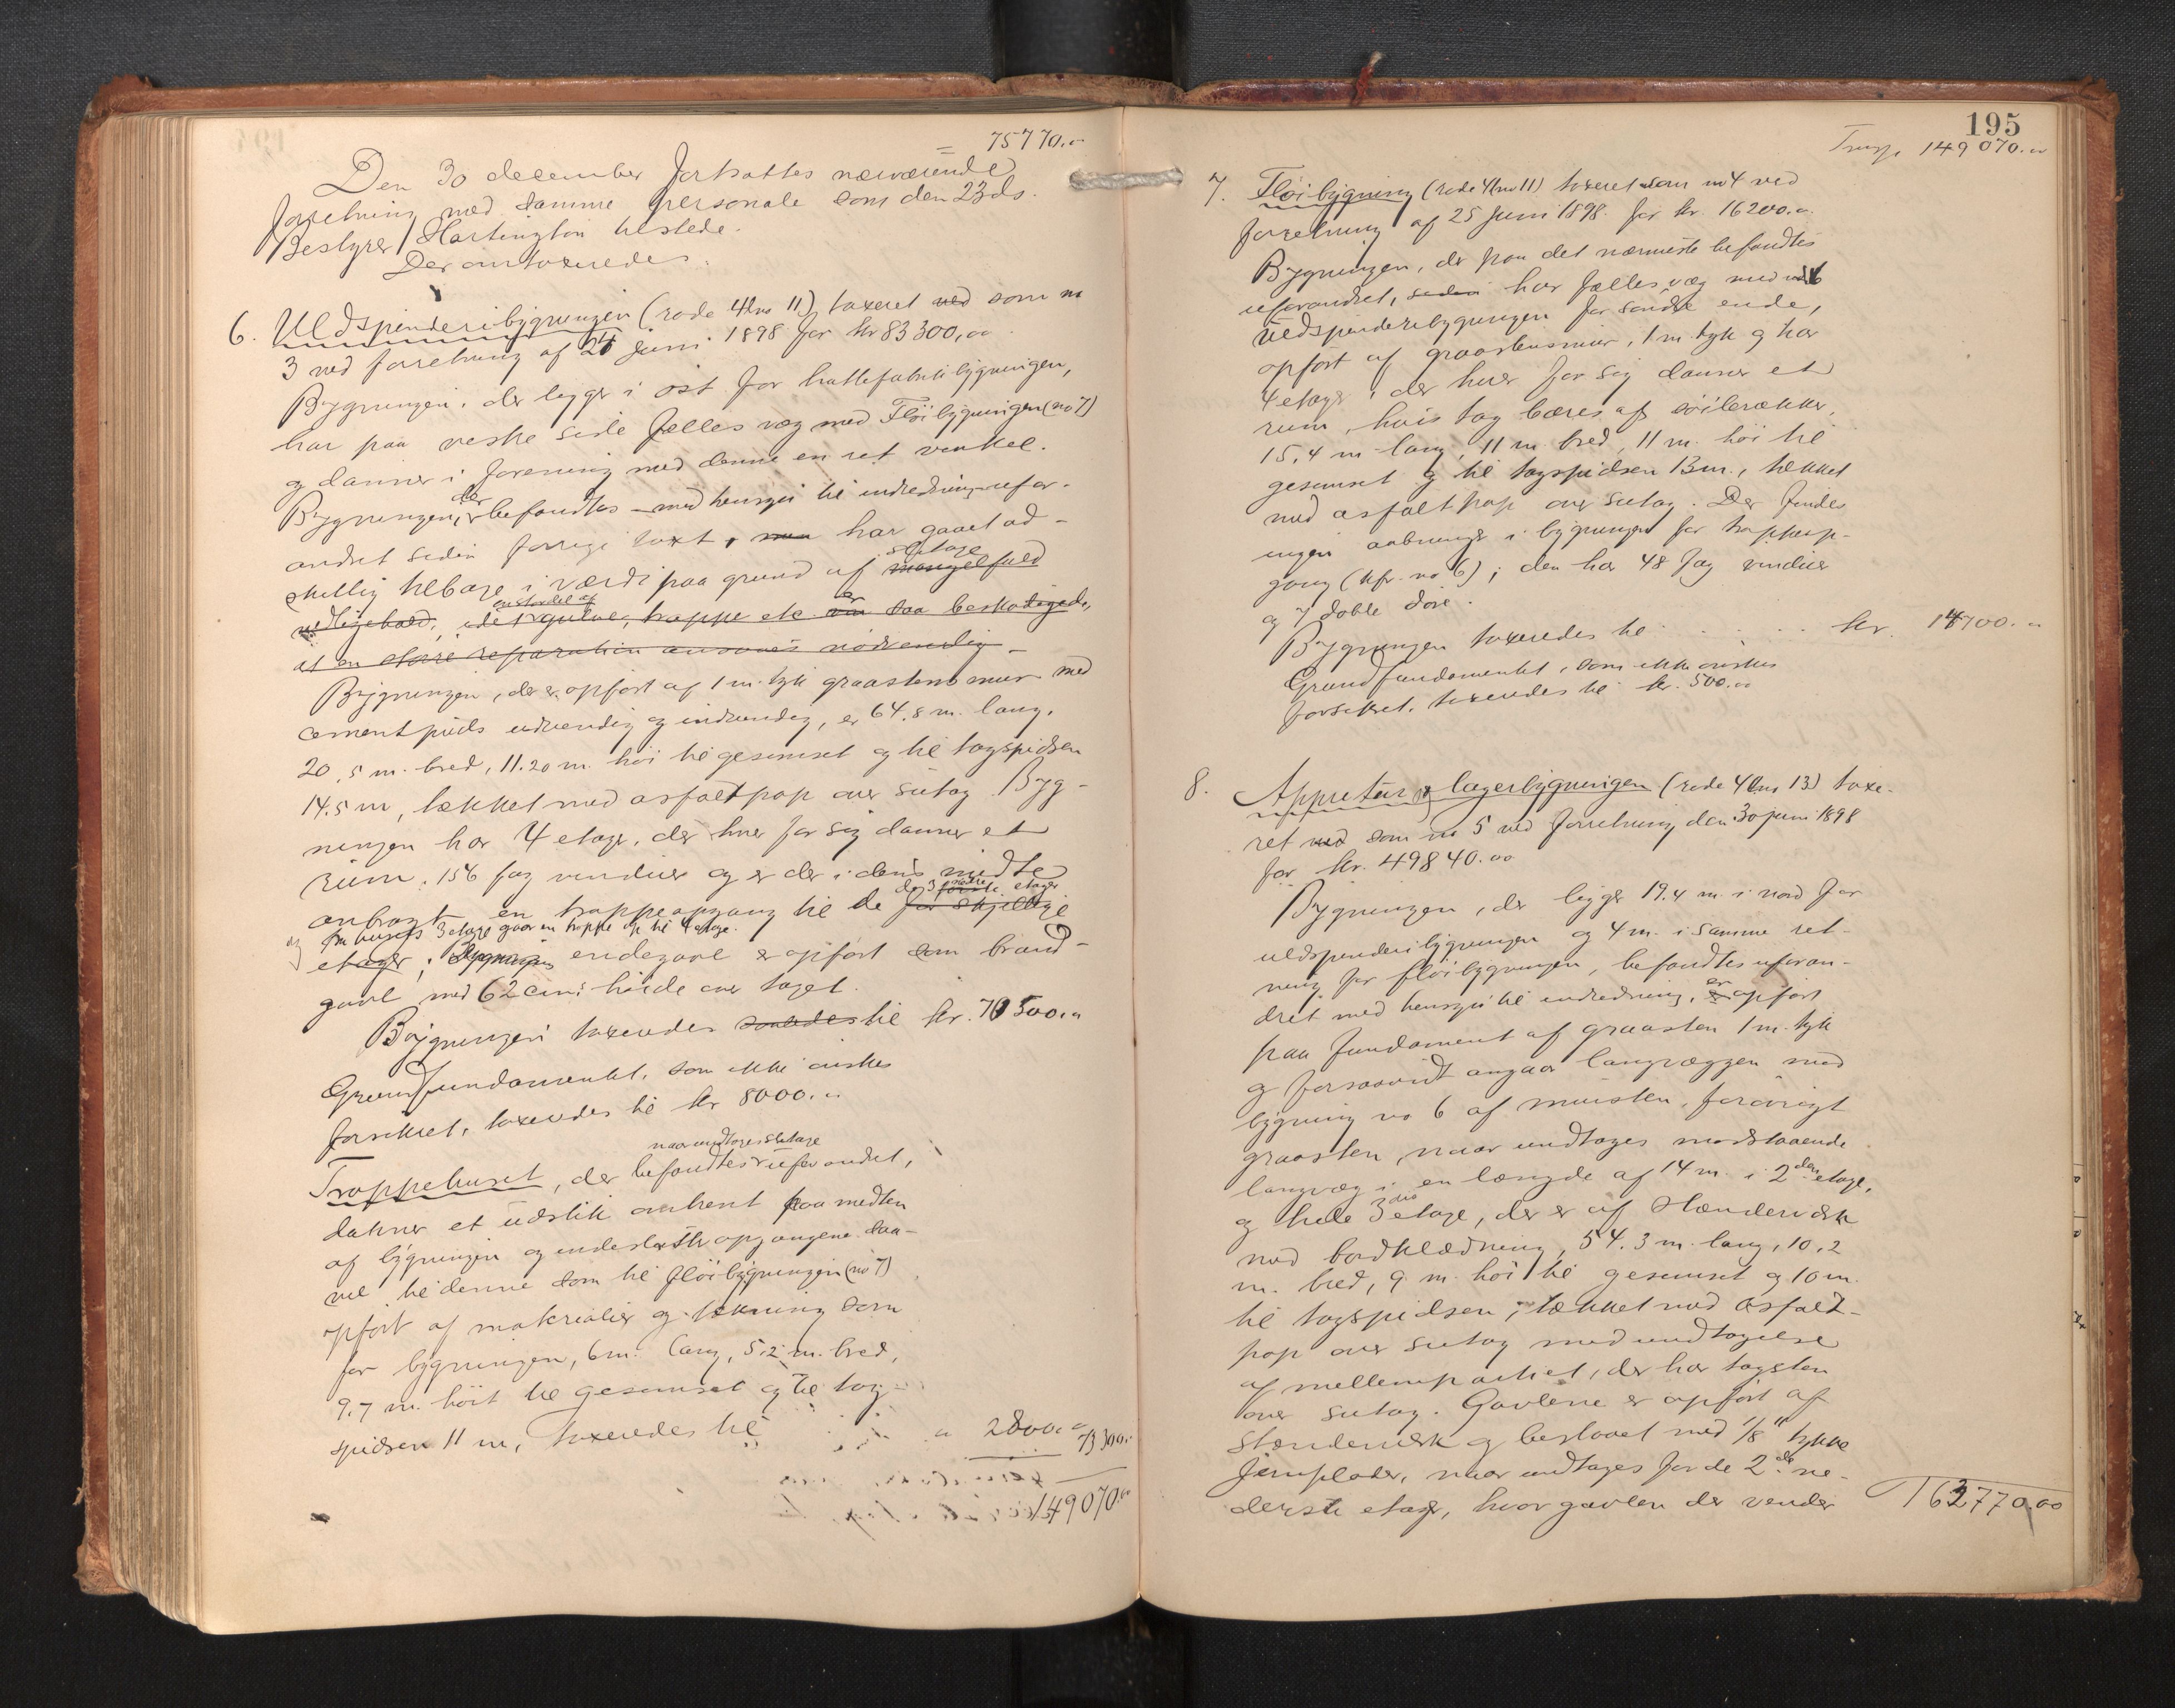 75770.00
Den 30 december fortsattes nærværende
forretning med samme personale som den 23 ds.
Bestyrer Hartington tilstede.
Der omtaxeredes:
6. Uldspinderibygningen (rode 4 hno 11) taxeret ved som no
3 ved forretning af 24 juni 1898 for kr 83300,00
Bygningen, der ligger i øst for hattefabrikbygningen,
har paa vestre side fælles væg med Fløibygningen (no 7)
og danner i forening med denne en ret vinkel.
Bygningen, der befandtes med hensyn til indredning ufor-
andret siden forrige taxt, men har gaaet ad-
skillig tilbage i værdi paa grund af slitage mangelfuld
vedligehold, idet en stor del af gulve, trappe etc. er saa beskadigede,
at en større reparation ansaaes nødvendig
Bygningen, der er opført af 1 m. tyk graastens mur med
cementpuds udvendig og indvendig, er 64.8 m. lang,
20,5 m. bred, 11.20 m. høi til gesimset og til tagspidsen
14.5 m, tækket med asfaltpap over sutag. Byg-
ningen har 4 etager, der hver for sig danner et
rum, 156 fag vinduer og er der i dens midte
anbragt en trappeopgang til de forskjellige de 3 nedre første etager
og fra husets 3 etage gaar en trappe op til 4 etage.
etager; Bygningens endegavl er opført som brand-
gavl med 62 cm.s høide over taget.
Bygningen taxeredes saaledes til kr. 70500.00
Grundfundamentet, som ikke ønskes
forsikret, taxeredes til kr 8000.00
naar undtages slitage
Trappehuset, der befandtes uforandret,
danner et udstik omtrent paa midten
af bygningen og indeslutter opgangene saa-
vel til denne som til fløibygningen (no 7)
opført af materialier og tækning som
for bygningen, 6 m. lang, 5,2 m. bred,
9.7 m. høit til gesimset og til tag-
spidsen 11 m, taxeredes til " 2800.00
73300.00
149070.00
195
Transp. 149070.00
7. Fløibygning (rode 4 hno 11) taxeret som no 4 ved
forretning af 25 juni 1898 for kr. 16200.00
Bygningen, der paa det nærmeste befandtes
uforandret, siden har fælles væg med no 6
uldspinderibygningen for søndre ende,
opført af graastensmur, 1 m. tyk og har
4 etager, der hver for sig danner et
rum, hvis tag bæres af søilerækker,
15,4 m lang, 11 m bred, 11 m. høi til
gesimset og til tagspidsen 13 m., tækket
med asfaltpap over sutag. Der findes
ingen aabninger i bygningen for trappeop-
gang (kfr. no 6); den har 48 fag vinduer
og 7 doble døre.
Bygningen taxeredes til . . . . . kr. 14700.00
Grundfundamentet, som ikke ønskes
forsikret, taxeredes til kr. 500.00
8. Appretur & lagerbygningen (rode 4 hno 13) taxe-
ret ved som no 5 ved forretning den 30 juni 1898
for kr. 49840.00
Bygningen, der ligger 19.4 m. i nord for
uldspinderibygningen og 4 m. i samme ret-
ning for fløibygningen, befandtes uforan-
dret med hensyn til indredning, er opført
paa fundament af graasten 1 m. tyk
og forsaavidt angaar langvæggen mod
bygning no 6 af mursten, forøvrigt
graasten, naar undtages modstaaende
langvæg i en længde af 14 m. i 2den etage,
og hele 3die etage, der er af stænderværk
med bordklædning, 54.3 m. lang, 10,2
m. bred, 9 m. høi til gesimset og 10 m.
til tagspidsen, tækket med asfalt-
pap over sutag med undtagelse
af mellempartiet, der har tagsten
over sutag. Gavlene er opført af
stenderverk og beslaaet med 1/8" tykke
jernplader, naar undtages for de 2de ne-
derste etager, hvor gavlen der vender
163770.00